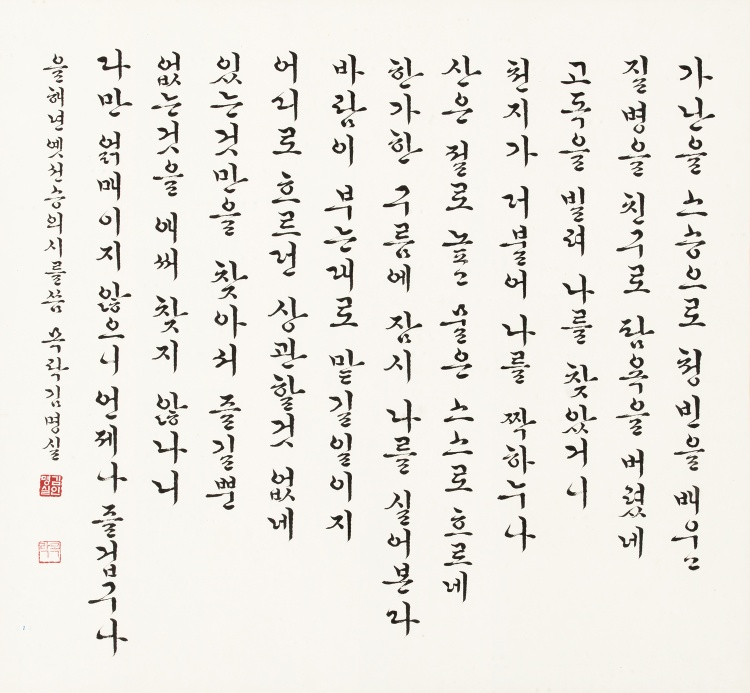 가난을 스승으로 청빈을 배우고
질병을 친구로 탐욕을 버렸네
고독을 빌려 나를 찾았거니
천지가 더불어 나를 짝하누나
산은 절로 높고 물은 스스로 흐르네
한가한 구름에 잠시 나를 실어본다
바람이 부는대로 맡길일이지
어디로 흐르던 상관할것 없네
있는것만을 찾아서 즐길뿐
없는것을 애써 찾지 않나니
다만 얽매이지 않으니 언제나 즐겁구나
을해년옛선승의시를씀 김명실